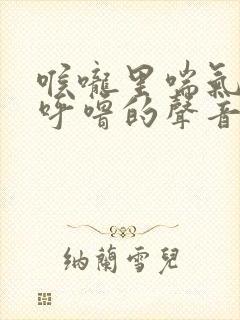 喉嚨里喘氣
呼嚕的聲音
納蘭雪兒